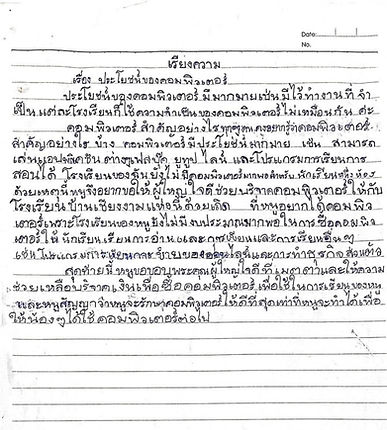 Date:
No.
เรียงความ
เรื่อง ประโยชน์ของคอมพิวเตอร์
ประโยชน์ของคอมพิวเตอร์ มีมากมายเช่น มีไว้ทำงาน ที่ จำ
เป็น แต่ละโรงเรียนก็ใช้ความจำเป็นของคอมพิวเตอร์ไม่เหมือนกัน ค่ะ
คอมพิวเตอร์ สำคัญอย่างไร ทุกๆคนคงอยากรู้ว่าคอมพิวเตอร์
สำคัญอย่างไร บ้าง คอมพิวเตอร์ มีประโยชน์มากมาย เช่น สามารถ
เล่นแอปพลิเคชัน ต่างๆเฟสบุ๊ค ยูทูป ไลน์ และโปรแกรมการเรียนการ
สอนได้ โรงเรียนของฉันยังไม่มีคอมพิวเตอร์มากพอสำหรับ นักเรียน
ด้วยเหตุนี้ หนูจึงอยากให้ผู้ใหญ่ใจดีช่วยบริจาคคอมพิวเตอร์ ให้กับ
โรงเรียนบ้านเชียงงามแห่งนี้ด้วยเถิด ที่หนูอยากได้คอมพิว
เตอร์เพราะโรงเรียนของหนูยังไม่มีงบประมาณมากพอในการซื้อคอมพิว
เตอร์ให้ นักเรียน เรียนการอ่านและการเขียนและการเรียนอื่นๆ
เช่นโปรแกรม และการทำธุรกิจส่วนตัว
สุดท้ายนี้ หนูขอขอบพระคุณผู้ใหญ่ใจดี ที่เมตตาและให้ความ
ช่วยเหลือบริจาคเงินเพื่อซื้อคอมพิวเตอร์ เพื่อใช้ในการเรียนของหนู
และหนูสัญญาว่าหนูจะรักษาคอมพิวเตอร์ให้ดีที่สุดเท่าที่หนูจะทำได้เพื่อ
ให้น้องๆได้ใช้คอมพิวเตอร์ต่อไป